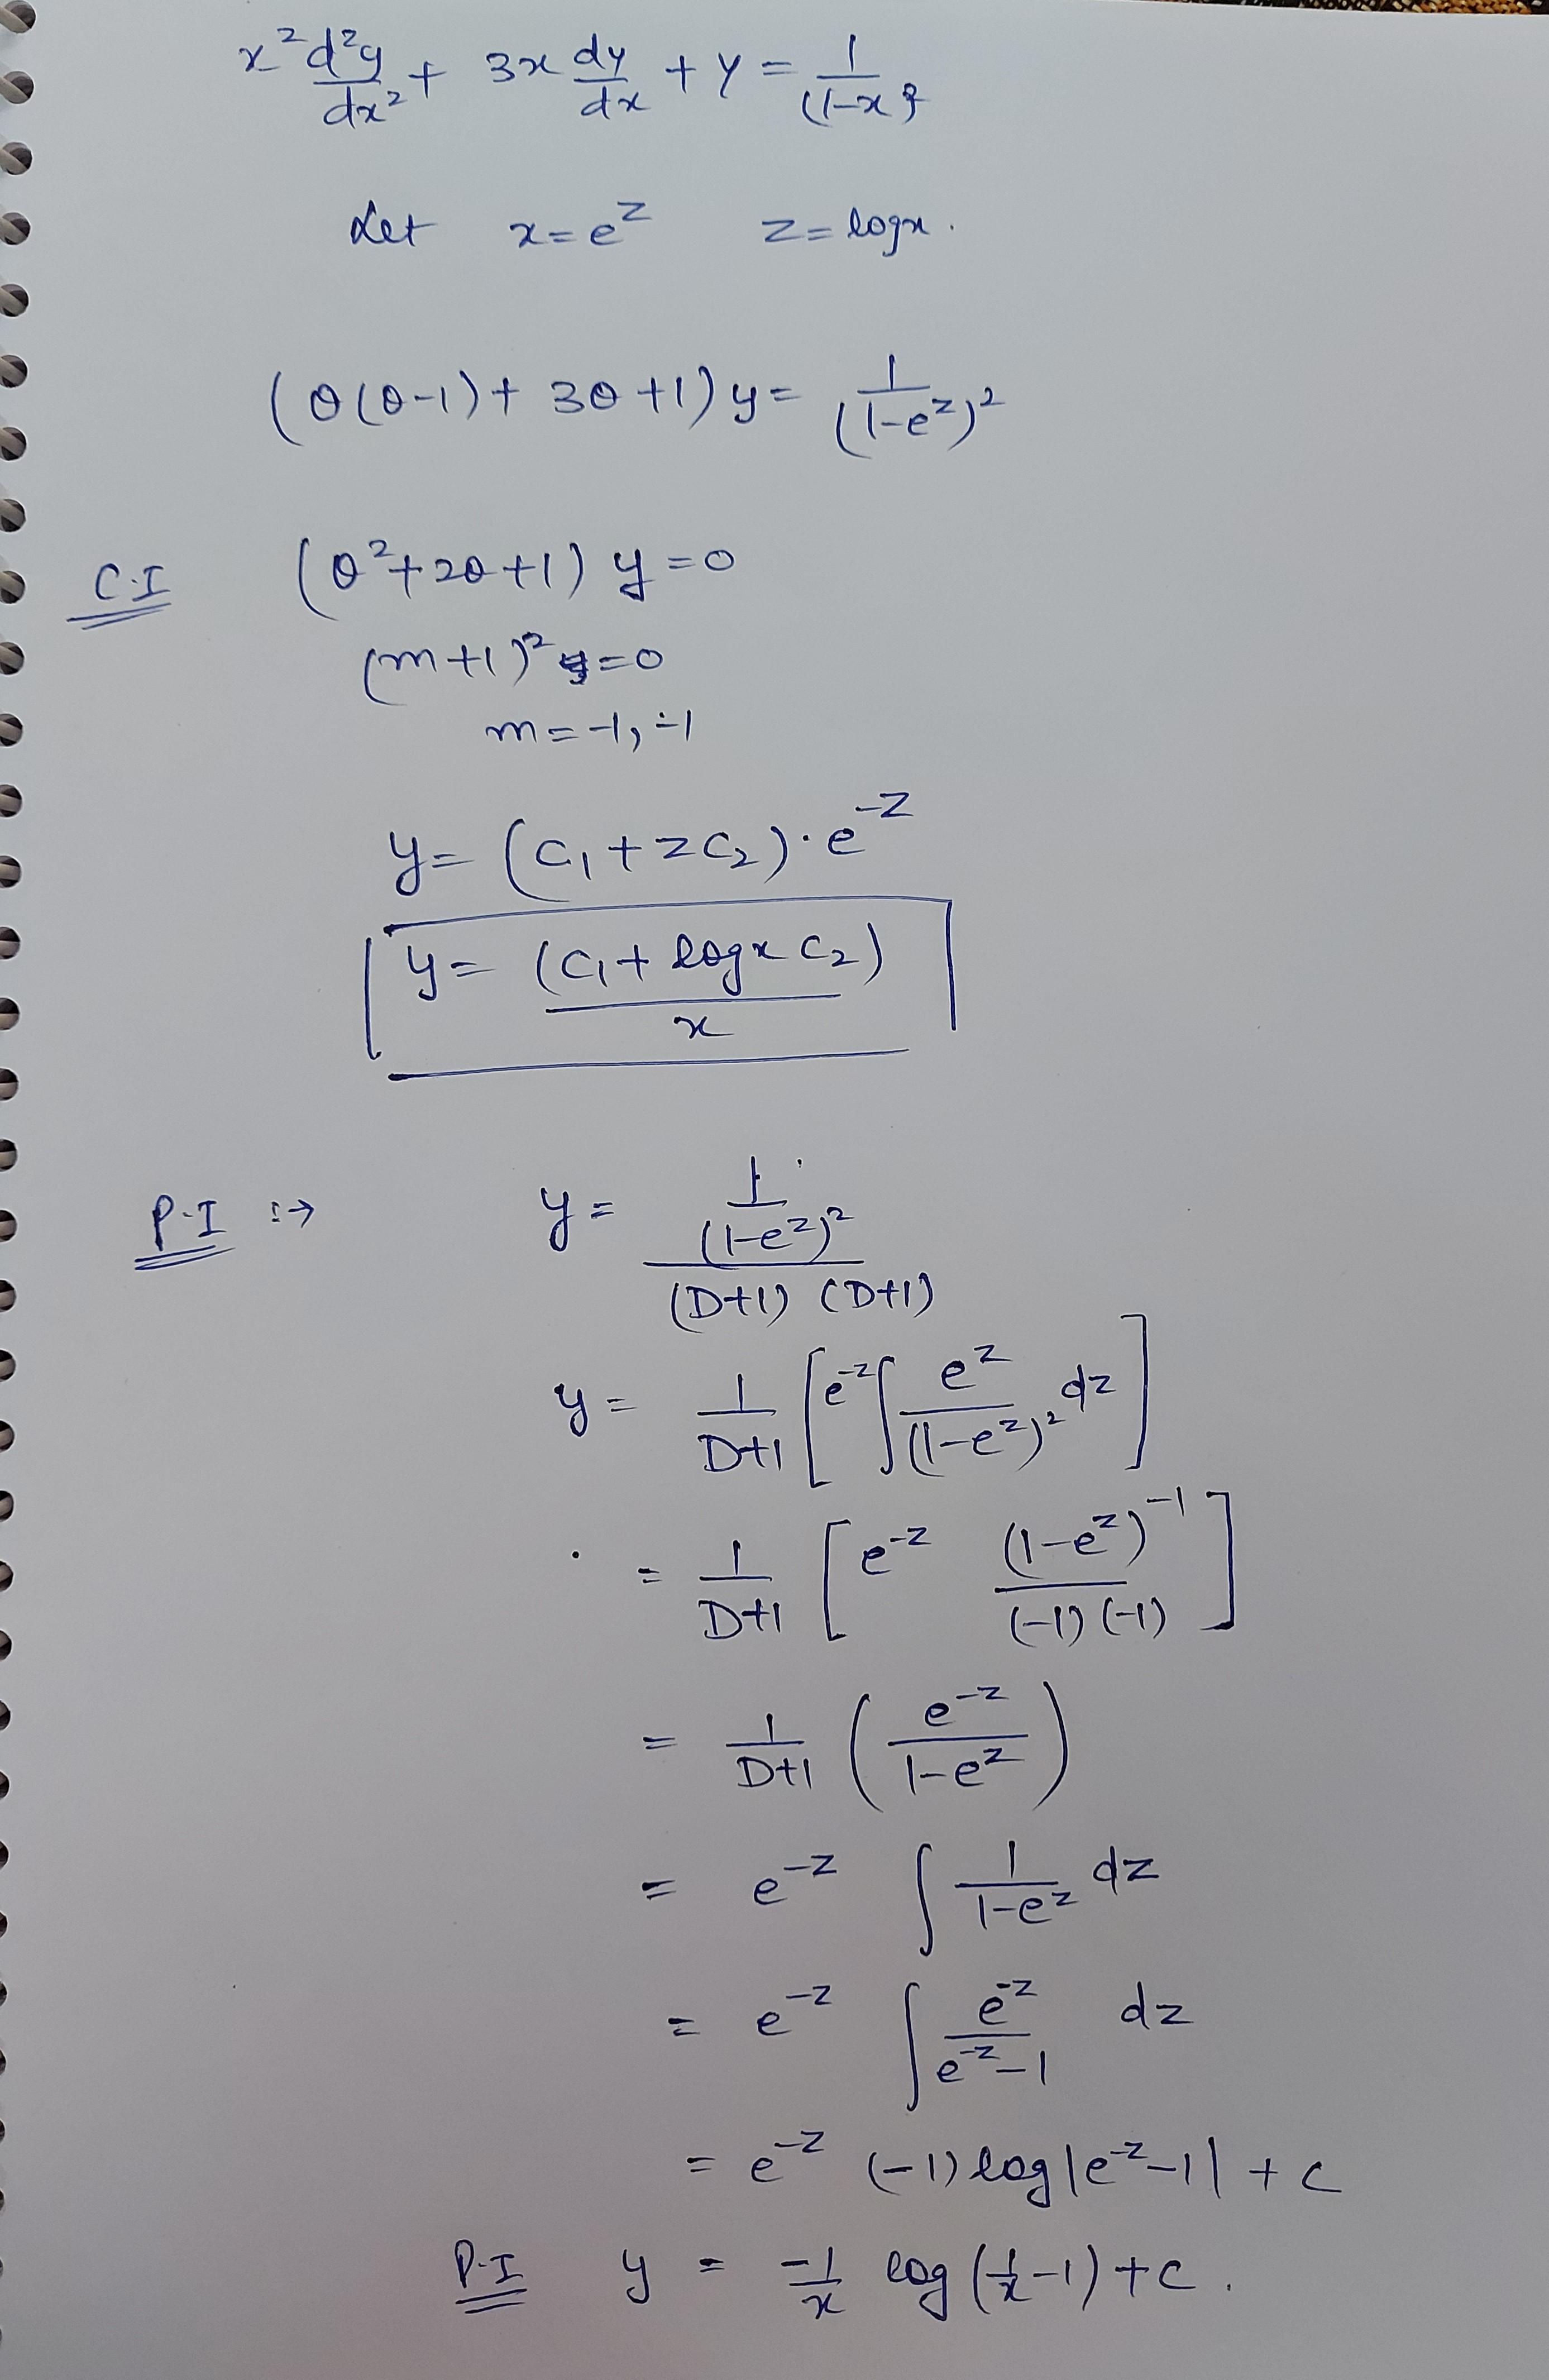 x² d²y/dx² + 3x dy/dx + y = 1/(1-x)²
Let x = e^z z = log x.
(θ(θ-1) + 3θ + 1) y = 1/(1-e^z)²
C.I (θ² + 2θ + 1) y = 0
(m+1)² = 0
m = -1, -1
y = (C₁ + zC₂) · e^-z
y = (C₁ + log x C₂)/x
P.I :→ y = 1/(1-e^z)² / (D+1) (D+1)
y = 1/(D+1) [e^-z ∫ e^z/(1-e^z)² dz]
= 1/(D+1) [e^-z (1-e^z)^-1/(-1)(-1)]
= 1/(D+1) (e^-z/(1-e^z))
= e^-z ∫ 1/(1-e^z) dz
= e^-z ∫ e^-z/(e^-z - 1) dz
= e^-z (-1) log|e^-z - 1| + c
P.I y = -1/x log(1/x - 1) + c.